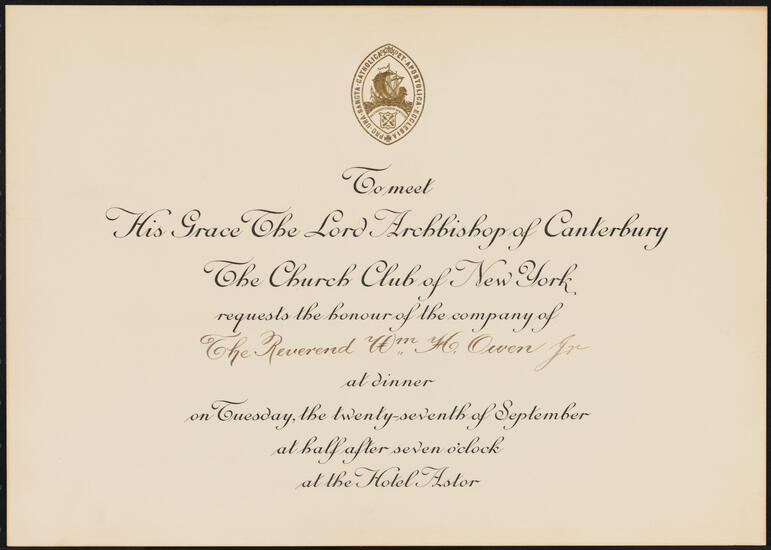 PRO·UNA·SANCTA·CATHOLICA·ET·APOSTOLICA·ECCLESIA
To meet
His Grace The Lord Archbishop of Canterbury
The Church Club of New York
requests the honour of the company of
The Reverend Wm. H. Owen Jr
at dinner
on Tuesday, the twenty-seventh of September
at half after seven o'clock
at the Hotel Astor